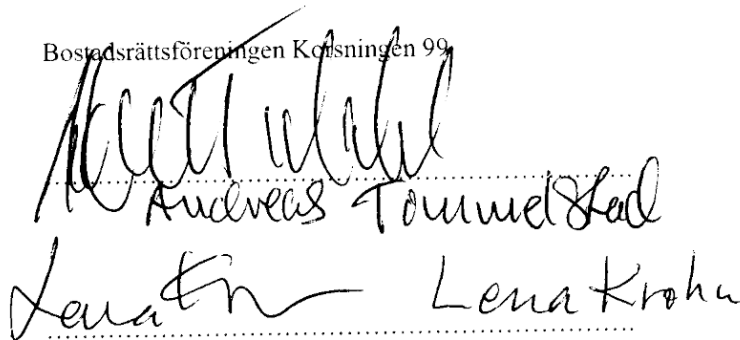 Bostadsrättsföreningen Korsningen 99
Andreas Tommelstad
Lena Krohn